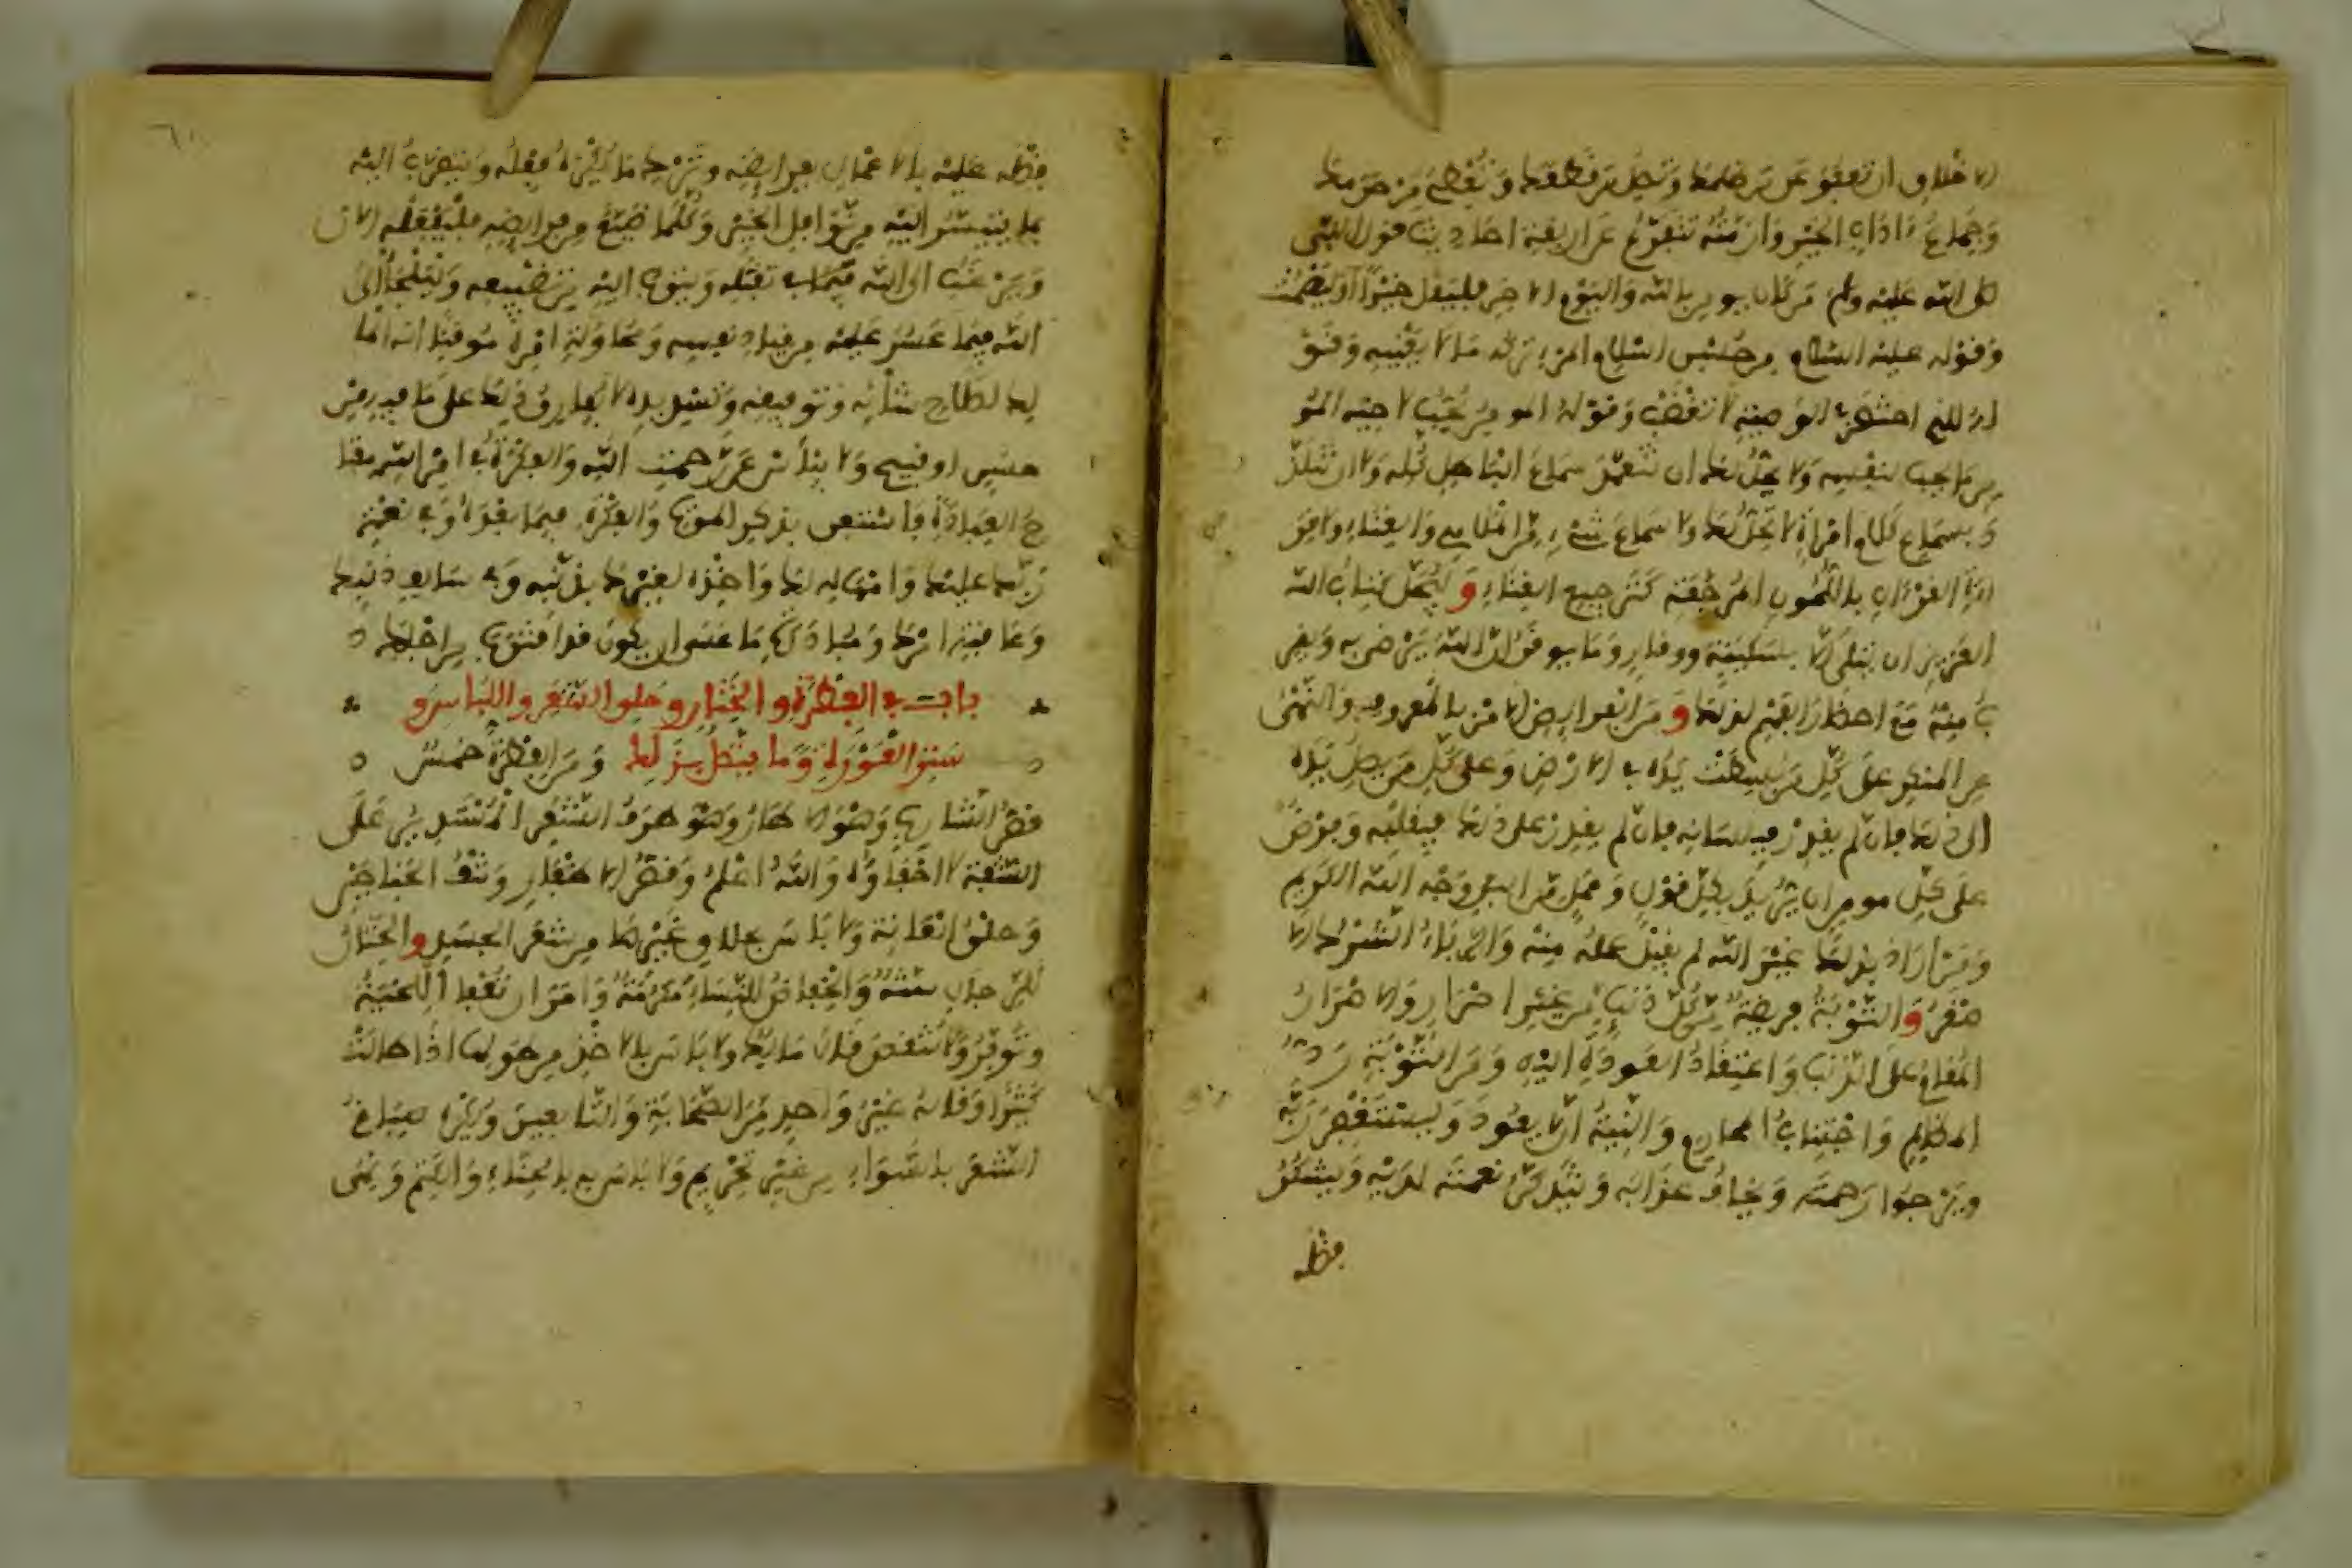 الاخلاق ان تعفو عمن ظلمك وتصل من قطعك وتعطي من حرمك
وجماع ءاداب الخير وازمته تتفرع عن اربعة احاديث قول النبي
صلى الله عليه وسلم من كان يومن بالله واليوم الاخر فليقل خيرا او ليصمت
وقوله عليه السلام من حسن اسلام المرء تركه ما لا يعنيه وقو
له للذي اختصر له الوصية لا تغضب وقوله المومن يحب لاخيه المو
من ما يحب لنفسه ولا يحل لك ان تتعمد سماع الباطل كله ولا ان تتلذ
ذ بسماع كلام امراة لا تحل لك ولا سماع شيء من الملاهي والغناء ولا قر
اءة القرءان باللحون المرجعة كترجيع الغناء وليجل كتاب الله
العزيز ان يتلى الا بسكينة ووقار وما يوقن ان الله يرضى به ويقر
ب منه مع احضار الفهم لذلك ومن الفرايض الامر بالمعروف والنهي
عن المنكر على كل من بسطت يده في الارض وعلى كل من تصل يده
الى ذلك فان لم يقدر فبلسانه فان لم يقدر على ذلك فبقلبه وفرض
على كل مومن ان يريد بكل قول وعمل من البر وجه الله الكريم
ومن اراد بذلك غير الله لم يقبل عمله منه والرياء الشرك الا
صغر والتوبة فريضة من كل ذنب من غير اصرار والاصرار
المقام على الذنب واعتقاد العودة اليه ومن التوبة رد
المظالم واجتناب المحارم والنية ان لا يعود وليستغفر ربه
ويرجوا رحمته ويخاف عذابه ويتذكر نعمته لديه ويشكر
فضله
فضله عليه بالاعمال بفرايضه وترك ما يكره فعله ويتقرب اليه
بما يتيسر اليه من نوافل الخير وكلما ضيع من فرايضه فليفعله الان
ويرغب الى الله في تقبله ويتوب اليه من تضييعه وليلجا الى
الله فيما عسر عليه من قياد نفسه ومحاولة امره موقنا انه الما
لك لصلاح شانه وتوفيقه وتسديده لا يفارق ذلك على ما فيه من
حسن او قبيح ولا ييأس من رحمت الله والفكرة في امر الله مفتا
ح العبادة فاستعن بذكر الموت والفكرة فيما بعده وفي نعمة
ربك عليك وامهاله لك واخذه لغيرك بذنبه وفي سالف ذنبك
وعاقبة امرك ومبادرة ما عسى ان يكون قد اقترب من اجلك
باب في الفطرة والختان وحلق الشعر واللباس و
ستر العورة وما يتصل بذلك ومن الفطرة خمس
قص الشارب وهو الاطار وهو طرف الشعر المستدير على
الشفة لا احفاؤه والله اعلم وقص الاظفار ونتف الجناحين
وحلق العانة ولا باس بحلاق غيرها من شعر الجسد والختان
للرجال سنة والخفاض للنساء مكرمة وامر ان تعفا اللحية
وتوفر ولا تنقص قال مالك ولا باس بالاخذ من طولها اذا طالت
كثيرا وقاله غير واحد من الصحابة والتابعين ويكره صباغ
الشعر بالسواد من غير تحريم ولا باس به بالحناء والكتم ونهى